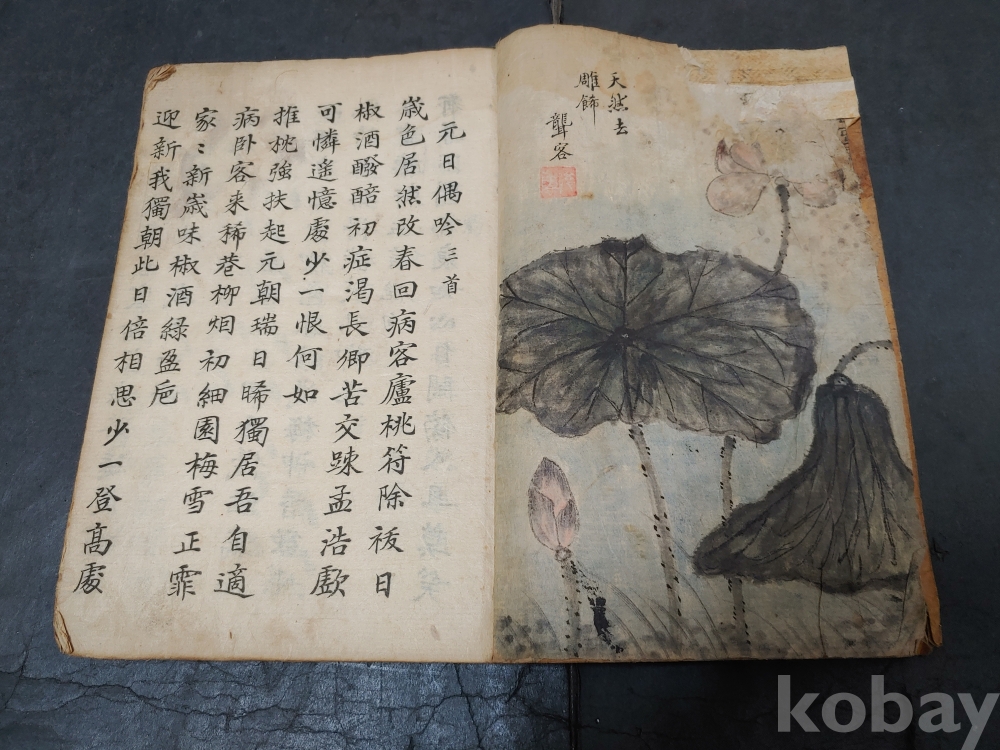 天然去
雕飾
聾客
元日偶吟三首
歲色居然改春回病容廬桃符除祓日
椒酒醱醅初症渴長卿苦交踈孟浩歔
可憐遥憶處少一恨何如
推枕強扶起元朝瑞日晞獨居吾自適
病卧客来稀巷柳烟初細園梅雪正霏
家〻新歲味椒酒綠盈巵
迎新我獨朝此日倍相思少一登髙處
kobay